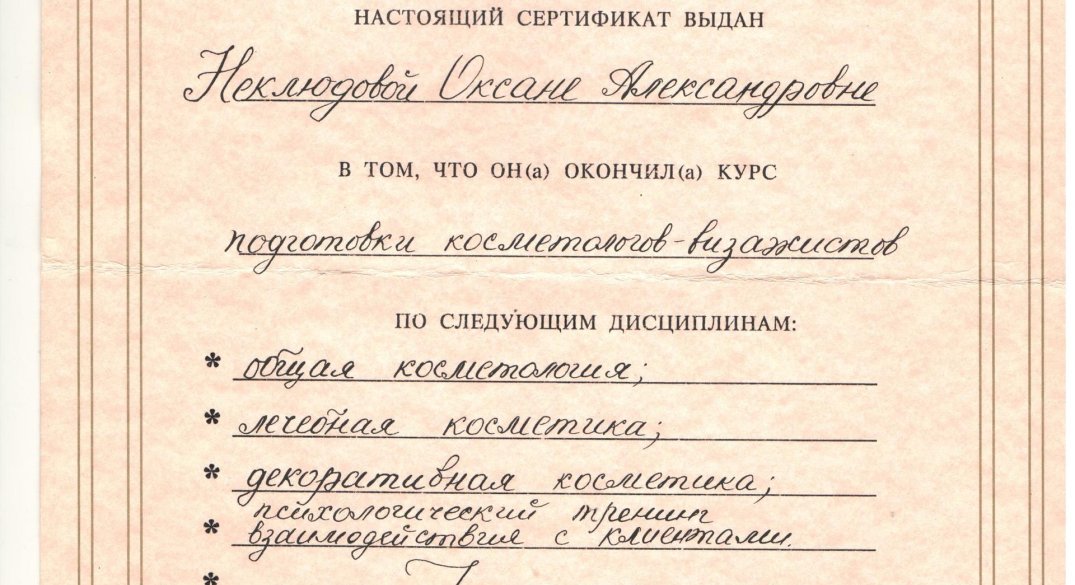 НАСТОЯЩИЙ СЕРТИФИКАТ ВЫДАН
Неклюдовой Оксане Александровне
В ТОМ, ЧТО ОН(а) ОКОНЧИЛ(а) КУРС
подготовки косметологов-визажистов
ПО СЛЕДУЮЩИМ ДИСЦИПЛИНАМ:
* общая косметология;
* лечебная косметика;
* декоративная косметика;
психологический тренинг
* взаимодействия с клиентами.
*